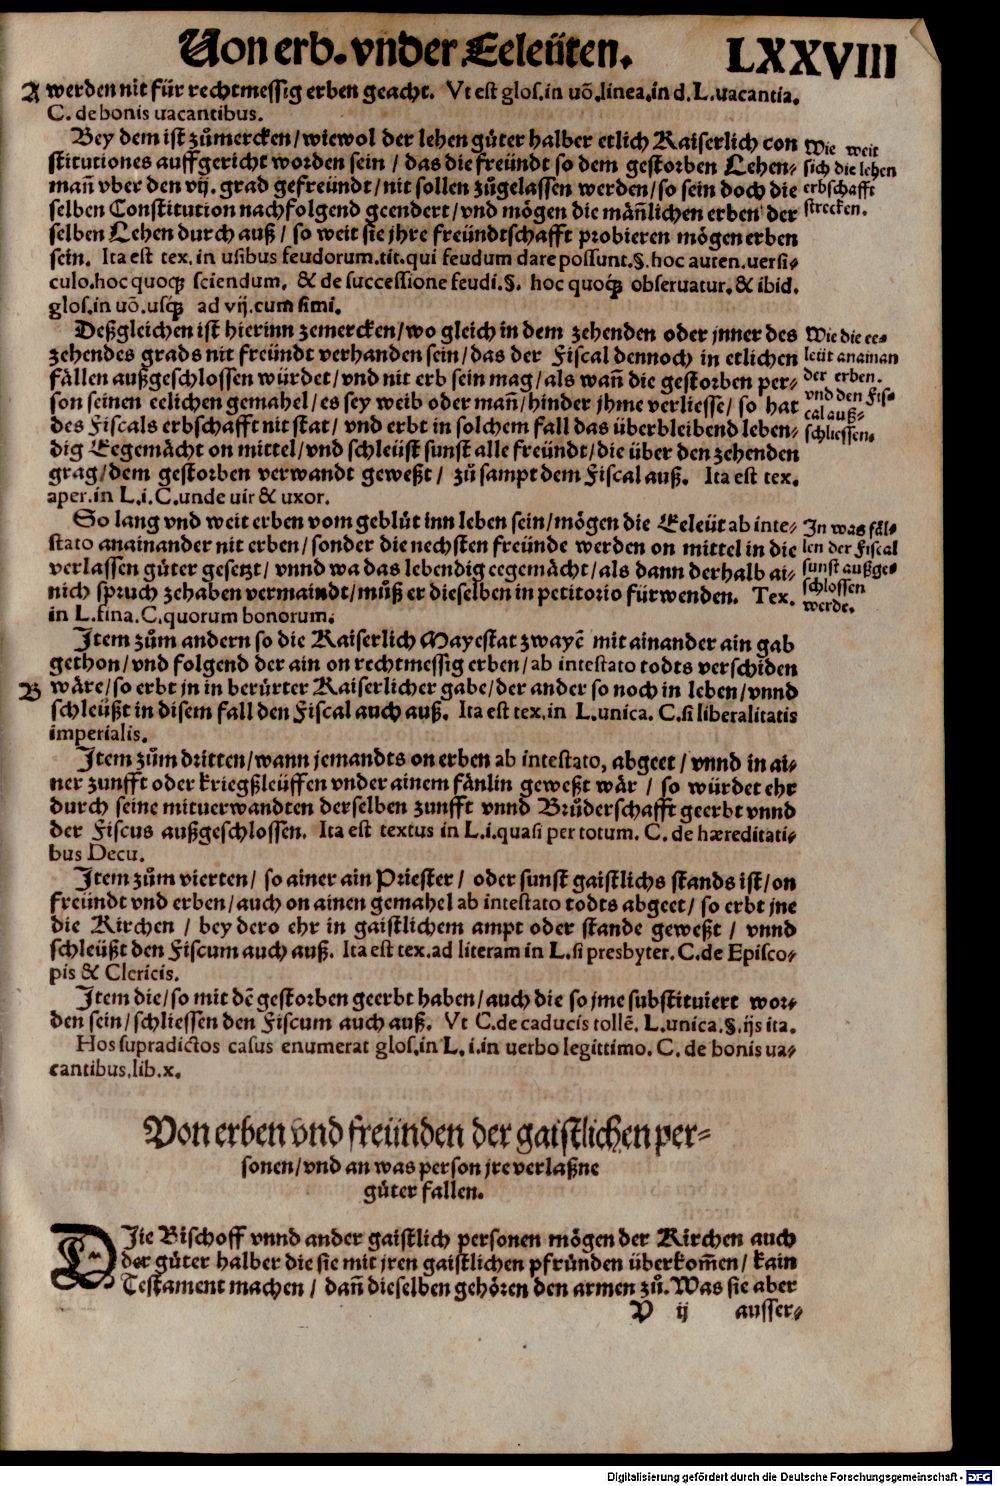 Von erb. vnder Eeleüten. LXXVIII
A werden nit für rechtmessig erben geacht. Vt est glos.in uõ.linea.in d.L.uacantia.
C. de bonis uacantibus.
Bey dem ist zůmercken/wiewol der lehen güter halber etlich Kaiserlich con
stitutiones auffgericht worden sein / das die freündt so dem gestorben Lehen-
mañ vber den vij. grad gefreündt/nit sollen zůgelassen werden/so sein doch die
selben Constitution nachfolgend geendert/vnd mögen die mãñlichen erben der
selben Lehen durch auß / so weit sie jhre freündtschafft probieren mögen erben
sein. Ita est tex. in usibus feudorum.tit.qui feudum dare possunt.§.hoc auten.uersi-
culo.hoc quoqȝ sciendum. & de successione feudi.§. hoc quoqȝ obseruatur.& ibid.
glos.in uõ.usqȝ ad vij.cum simi.
Wie weit
sich die lehen
erbschafft
strecken.
Deßgleichen ist hierinn zemercken/wo gleich in dem zehenden oder jnner des
zehendes grads nit freündt verhanden sein/das der Fiscal dennoch in etlichen
fällen außgeschlossen würdet/vnd nit erb sein mag/als wañ die gestorben per-
son seinen eelichen gemahel/es sey weib oder mañ/hinder jhme verliesse/ so hat
des Fiscals erbschafft nit stat/ vnd erbt in solchem fall das überbleibend leben-
dig Eegemächt on mittel/vnd schleüst sunst alle freündt/die über den zehenden
grag/dem gestorben verwandt geweßt / zů sampt dem Fiscal auß. Ita est tex.
aper.in L.i.C.unde uir & uxor.
Wie die ee-
leüt anainan
der erben.
vnd den Fis-
cal auß-
schliessen.
So lang vnd weit erben vom geblüt inn leben sein/mögen die Eeleüt ab inte-
stato anainander nit erben/sonder die nechsten freünde werden on mittel in die
verlassen güter gesetzt/ vnnd wa das lebendig eegemächt/als dann derhalb ai-
nich spruch zehaben vermaindt/můß er dieselben in petitorio fürwenden. Tex.
in L.fina.C.quorum bonorum.
In was fäl-
len der Fiscal
sunst außge-
schlossen
werde.
Item zům andern so die Kaiserlich Mayestat zwayẽ mit ainander ain gab
gethon/vnd folgend der ain on rechtmessig erben/ab intestato todts verschiden
B wäre/so erbt jn in berürter Kaiserlicher gabe/der ander so noch in leben/vnnd
schleüßt in disem fall den Fiscal auch auß. Ita est tex.in L.unica. C.si liberalitatis
imperialis.
Item zům dritten/wann jemandts on erben ab intestato, abgeet/vnnd in ai-
ner zunfft oder kriegßleüffen vnder ainem fänlin geweßt wär / so würdet ehr
durch seine mituerwandten derselben zunfft vnnd Brüderschafft geerbt vnnd
der Fiscus außgeschlossen. Ita est textus in L.i.quasi per totum. C. de hæreditati-
bus Decu.
Item zům vierten/ so ainer ain Priester/ oder sunst gaistlichs stands ist/on
freündt vnd erben/auch on ainen gemahel ab intestato todts abgeet/ so erbt jne
die Kirchen / bey dero ehr in gaistlichem ampt oder stande geweßt / vnnd
schleüßt den Fiscum auch auß. Ita est tex.ad literam in L.si presbyter.C.de Episco-
pis & Clericis.
Item die/so mit dẽ gestorben geerbt haben/auch die so jme substituiert wor-
den sein/schliessen den Fiscum auch auß. Vt C.de caducis tollẽ. L.unica.§.ijs ita.
Hos supradictos casus enumerat glos.in L.i.in uerbo legittimo. C. de bonis ua-
cantibus.lib.x.
Von erben vnd freünden der gaistlichen per-
sonen/vnd an was person jre verlaßne
güter fallen.
DIie Bischoff vnnd ander gaistlich personen mögen der Kirchen auch
der güter halber die sie mit jren gaistlichen pfründen überkom̃en/kain
Testament machen / dañ dieselben gehören den armen zů. Was sie aber
P ij ausser-
Digitalisierung gefördert durch die Deutsche Forschungsgemeinschaft - DFG